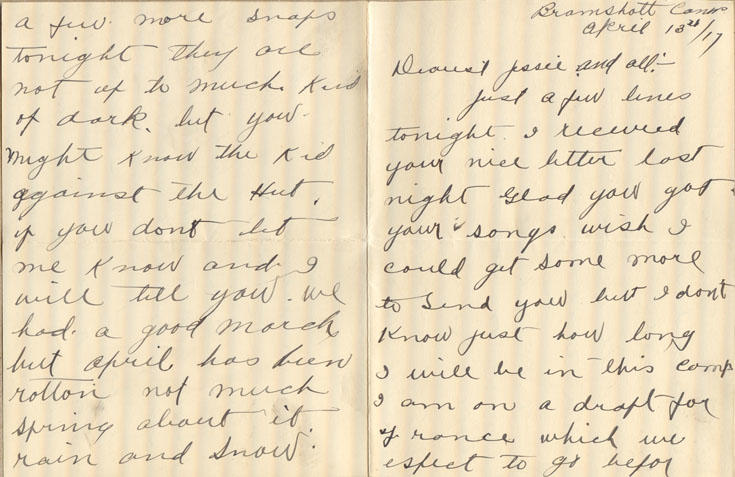 Bramshott Camp
April 13th/17
Dearest Jssie and all:-
Just a few lines
tonight. I received
your nice letter last
night Glad you got
your songs wish I
could get some more
to send you but I dont
Know just how long
I will be in this camp
I am on a draft for
France which we
espect to go befor
a few more snaps
tonight they are
not up to much Kind
of dark. but you
might Know the Kid
against the Hut.
if you dont let
me Know and I
will tell you. we
had a good march
but april has been
rotton not much
spring about it.
rain and snow.